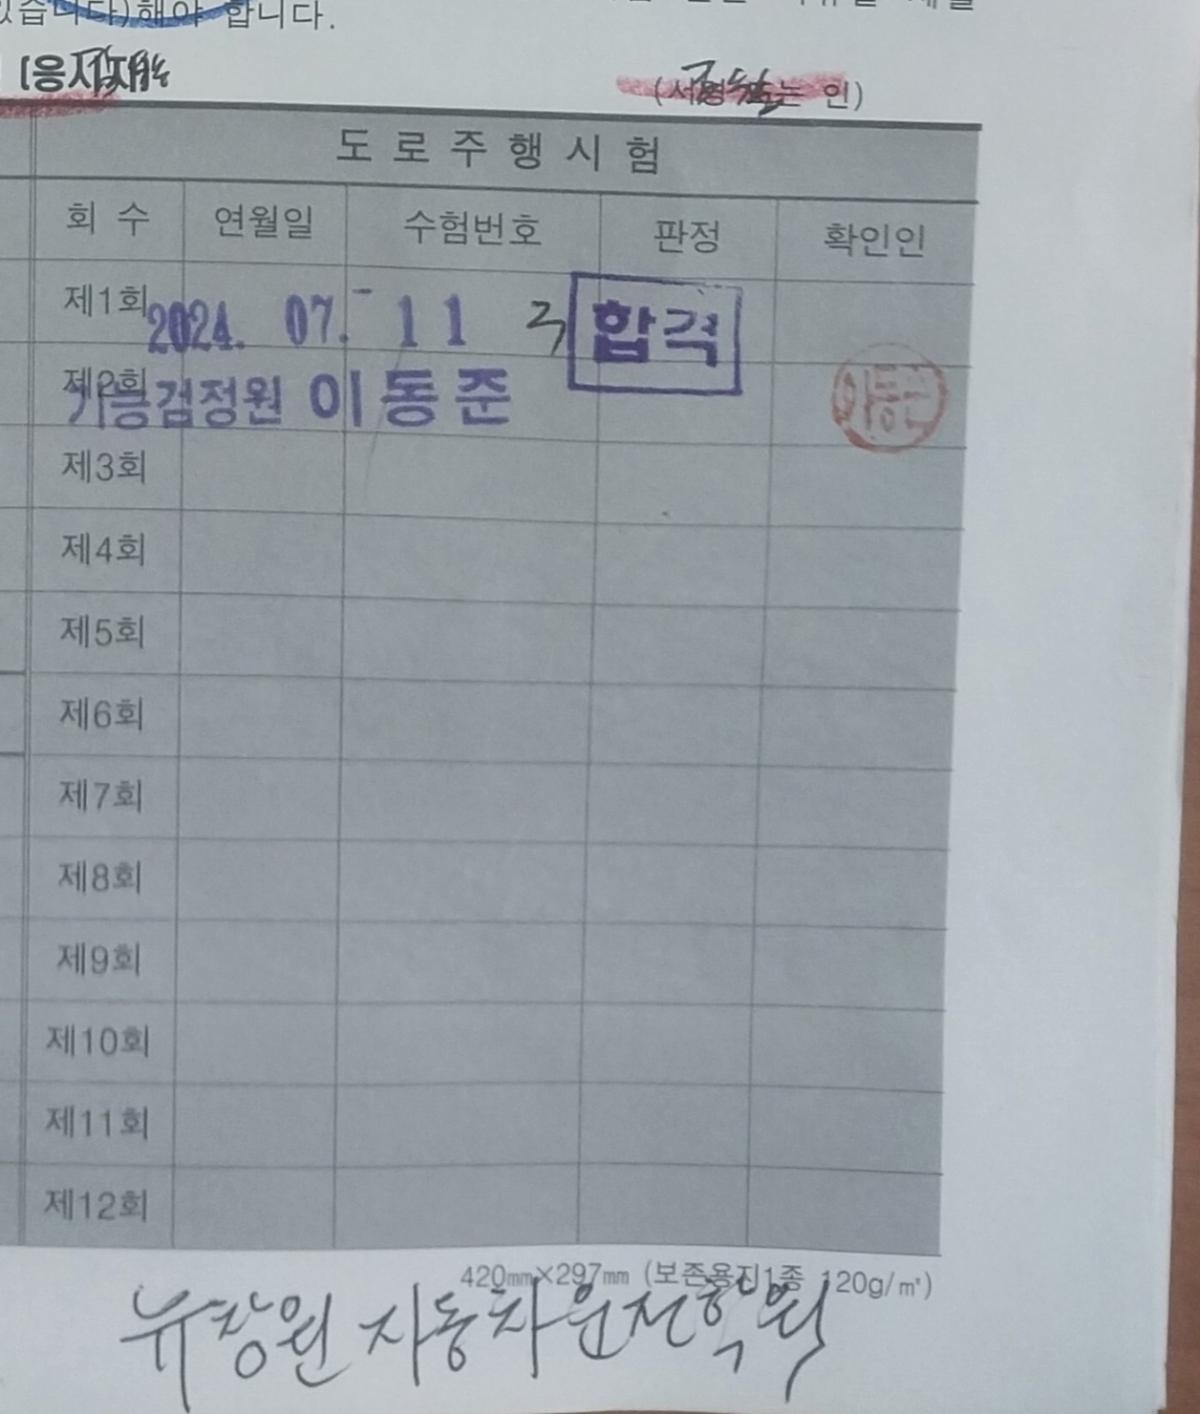 있습니다)해야 합니다.
[응시자
(서명 또는 인)
도로주행시험
회 수 연월일 수험번호 판정 확인인
제1회 2024. 07. 11 합격
제2회 기능검정원 이동준 이동준
제3회
제4회
제5회
제6회
제7회
제8회
제9회
제10회
제11회
제12회
420㎜×297㎜ (보존용지1종 120g/㎡)
뉴창원 자동차운전학원